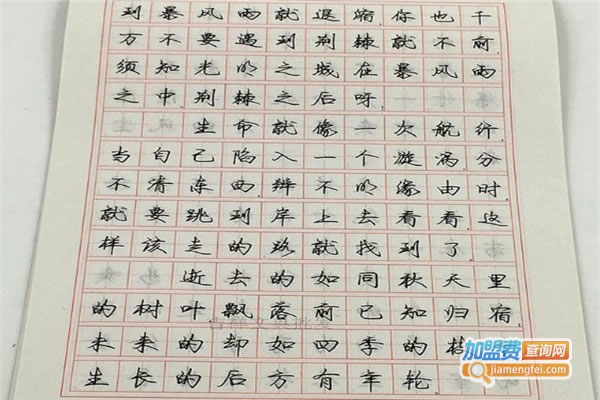 到暴风雨就退缩.你也千
万不要遇到荆棘就不前
须知光明之城在暴风雨
之中荆棘之后呀.
生命就像一次航行
当自己陷入一个漩涡分
不清东西辨不明缘由时
就要跳到岸上去看看.这
样该走的路就找到了.
逝去的如同秋天里
的树叶飘落前已知归宿.
未来的却如四季的
生长的后方有年轮
加盟费查询网
jiamengfei.com